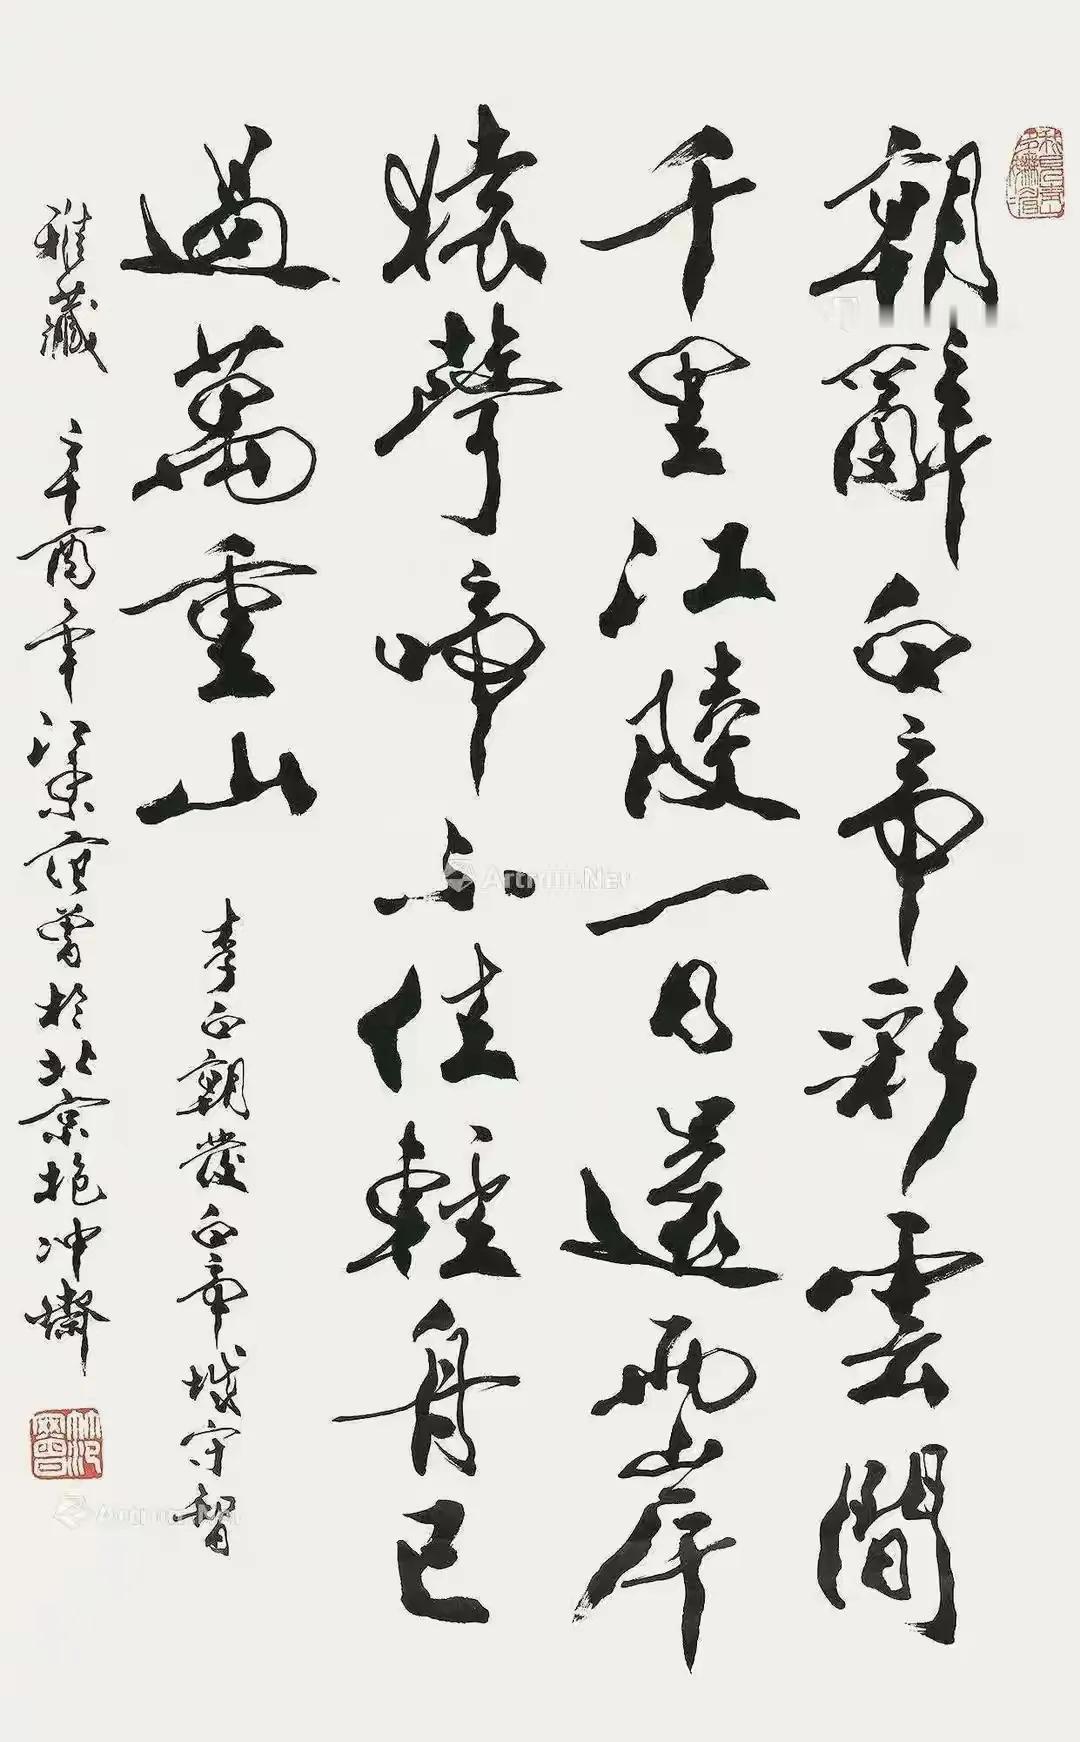 朝辭白帝彩雲間
千里江陵一日還兩岸
猿聲啼不住輕舟已
過萬重山
李白朝發白帝城守智
雅藏 辛酉年江東范曾於北京抱冲齋
范曾
Artmiii.Net